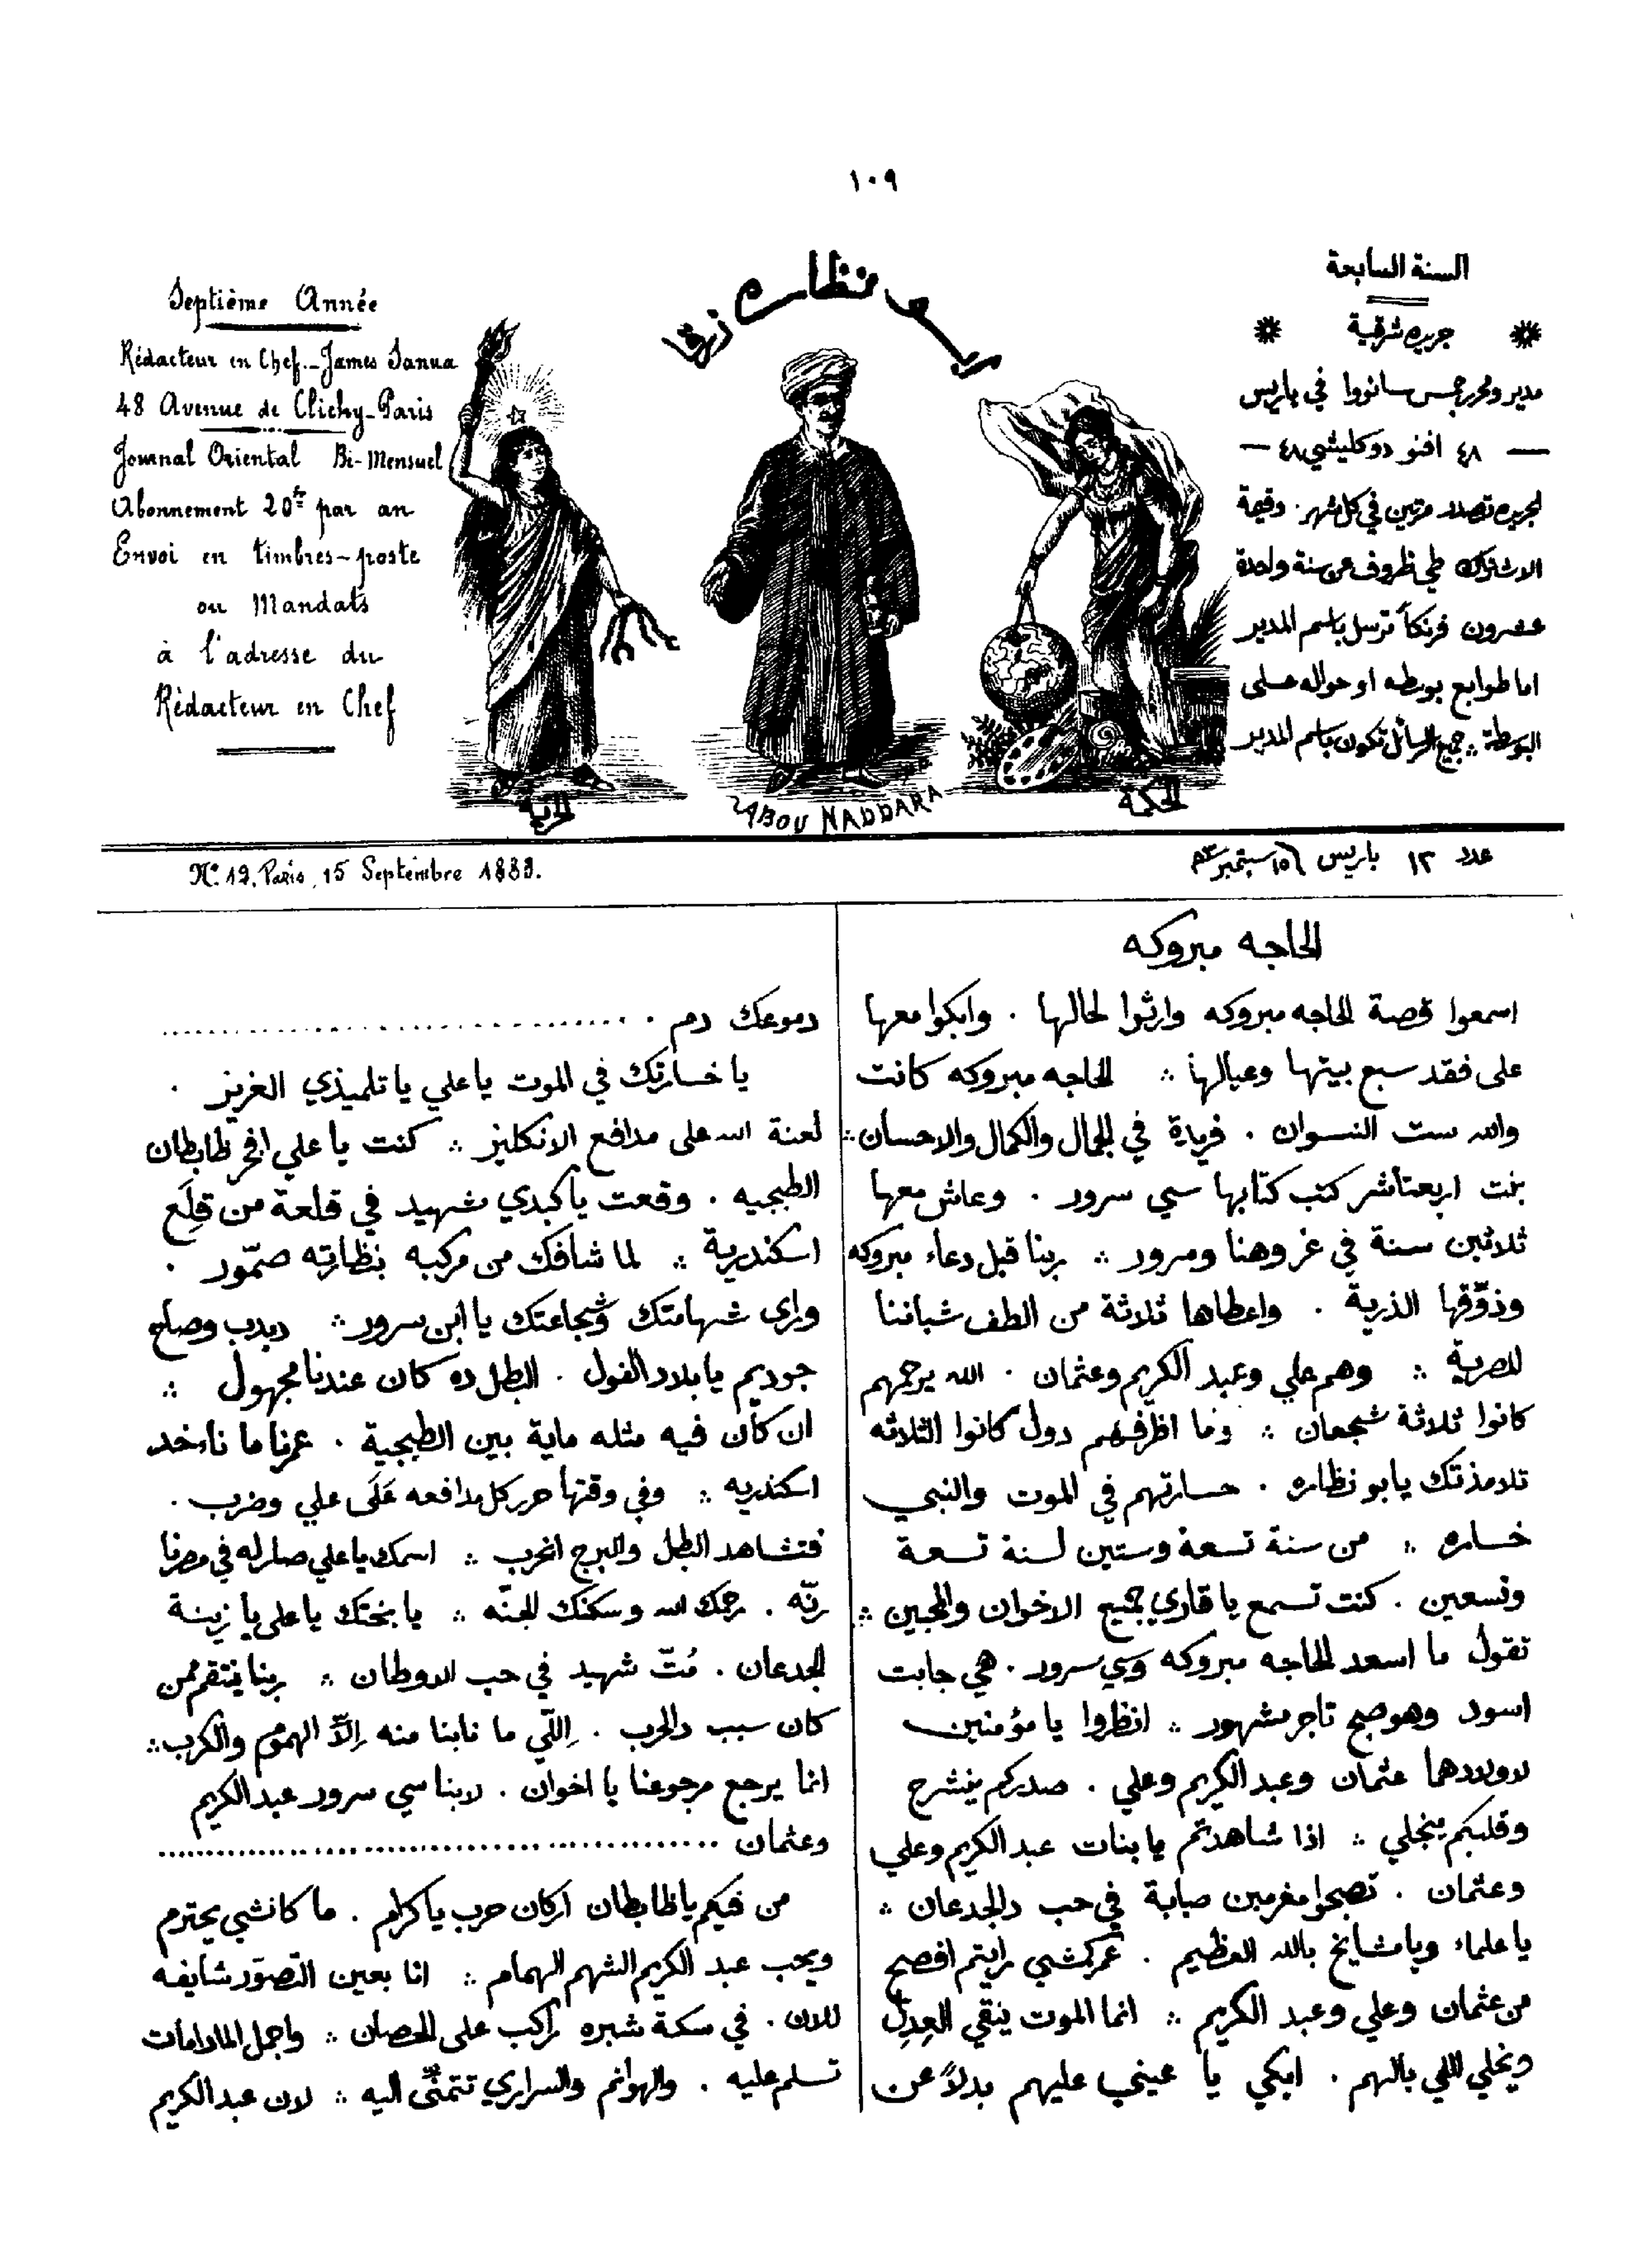 ١٠٩
السنة السابعة
جريده شرقية
مدير ومحرر جمس سانووا في باريس
— ٤٨ افنو دو كليشي ٤٨ —
الجريده تصدر مرتين في كل شهر . وقيمة
الاشتراك طي ظروف عن سنة واحدة
عشرون فرنكاً ترسل باسم المدير
اما طوابع بوسطه او حواله على
البوسطة ؞ جميع الرسائل تكون باسم المدير
ابو نظاره زرقا
Septième Année
Rédacteur en Chef - James Sanua
48 Avenue de Clichy - Paris
Journal Oriental Bi-Mensuel
Abonnement 20fr par an
Envoi en timbres-poste
ou Mandats
à l'adresse du
Rédacteur en Chef
الحكمة
ABOU NADDARA
الحرية
عدد ١٢ باريس ١٥ سبتمبر
No. 12. Paris, 15 Septembre 1883.
الحاجه مبروكه
اسمعوا قصة الحاجه مبروكه وارثوا لحالها . وابكوا معها
على فقد سبع بيتها وعيالها ؞ الحاجه مبروكه كانت
والله ست النسوان . فريدة في الجمال والكمال والاحسان ؞
بنت اربعتاشر كتب كتابها سي سرور . وعاش معها
ثلاثين سنة في عز وهنا ومرور ؞ ربنا قبل دعاء مبروكه
وذوّقها الذرية . واعطاها ثلاثة من الطف شباننا
المصرية ؞ وهم علي وعبد الكريم وعثمان . الله يرحمهم
كانوا ثلاثة شجعان ؞ وما اظرفهم دول كانوا الثلاثه
تلامذتك يابو نظاره . خسارتهم في الموت والنبي
خساره ؞ من سنة تسعة وستين لسنة تسعة
وتسعين . كنت تسمع يا قاري جميع الاخوان والمحبين ؞
تقول ما اسعد الحاجه مبروكه وسي سرور . هي جابت
اسود وهو صبح تاجر مشهور ؞ انظروا يا مؤمنين
لاولادهما عثمان وعبد الكريم وعلي . صدركم ينشرح
وقلبكم ينجلي ؞ اذا شاهدتم يا بنات عبد الكريم وعلي
وعثمان . تصبحوا مغرمين صبابة في حب دالجدعان ؞
يا علماء ويا مشايخ بالله العظيم . عمركمشي رايتم افصح
من عثمان وعلي وعبد الكريم ؞ انما الموت ينقي العِدِل
ويخلي اللي بالهم . ابكي يا عيني عليهم بدلاً عن
دموعك دم . ..............................
يا خسارتك في الموت يا علي يا تلميذي العزيز .
لعنة الله على مدافع الانكليز ؞ كنت يا علي افخر ظابطان
الطبجيه . وقعت يا كبدي شهيد في قلعة من قِلَع
اسكندرية ؞ لما شافك من مركبه بنظارته صمّور .
وراى شهامتك وشجاعتك يا ابن سرور ؞ دبدب وصاح
جوديم يا بلاد الفول . البطل ده كان عندنا مجهول ؞
ان كان فيه مثله ماية بين الطبجية . عمرنا ما ناخد
اسكندريه ؞ وفي وقتها حرر كل مدافعه عَلَى علي وضرب .
فتشاهد البطل والبرج انخرب ؞ اسمك يا علي صار له في مصرنا
رنّه . رحمك الله وسكنك الجنّه ؞ يا بختك يا علي يا زينة
الجدعان . مُتّ شهيد في حب الاوطان ؞ ربنا ينتقم ممن
كان سبب دالحرب . اِللّي ما نابنا منه اِلاّ الهموم والكرب ؞
انما يرجع مرجوعنا يا اخوان . لابنا سي سرور عبد الكريم
وعثمان ..............................
من فيكم يا ظابطان اركان حرب يا كرام . ما كانشي يحترم
ويحب عبد الكريم الشهم الهمام ؞ انا بعين التصوّر شايفه
للان . في سكة شبره راكب على الحصان ؞ واجمل المادامات
تسلم عليه . والهوانم والسراري تتمنّى اليه ؞ لان عبد الكريم